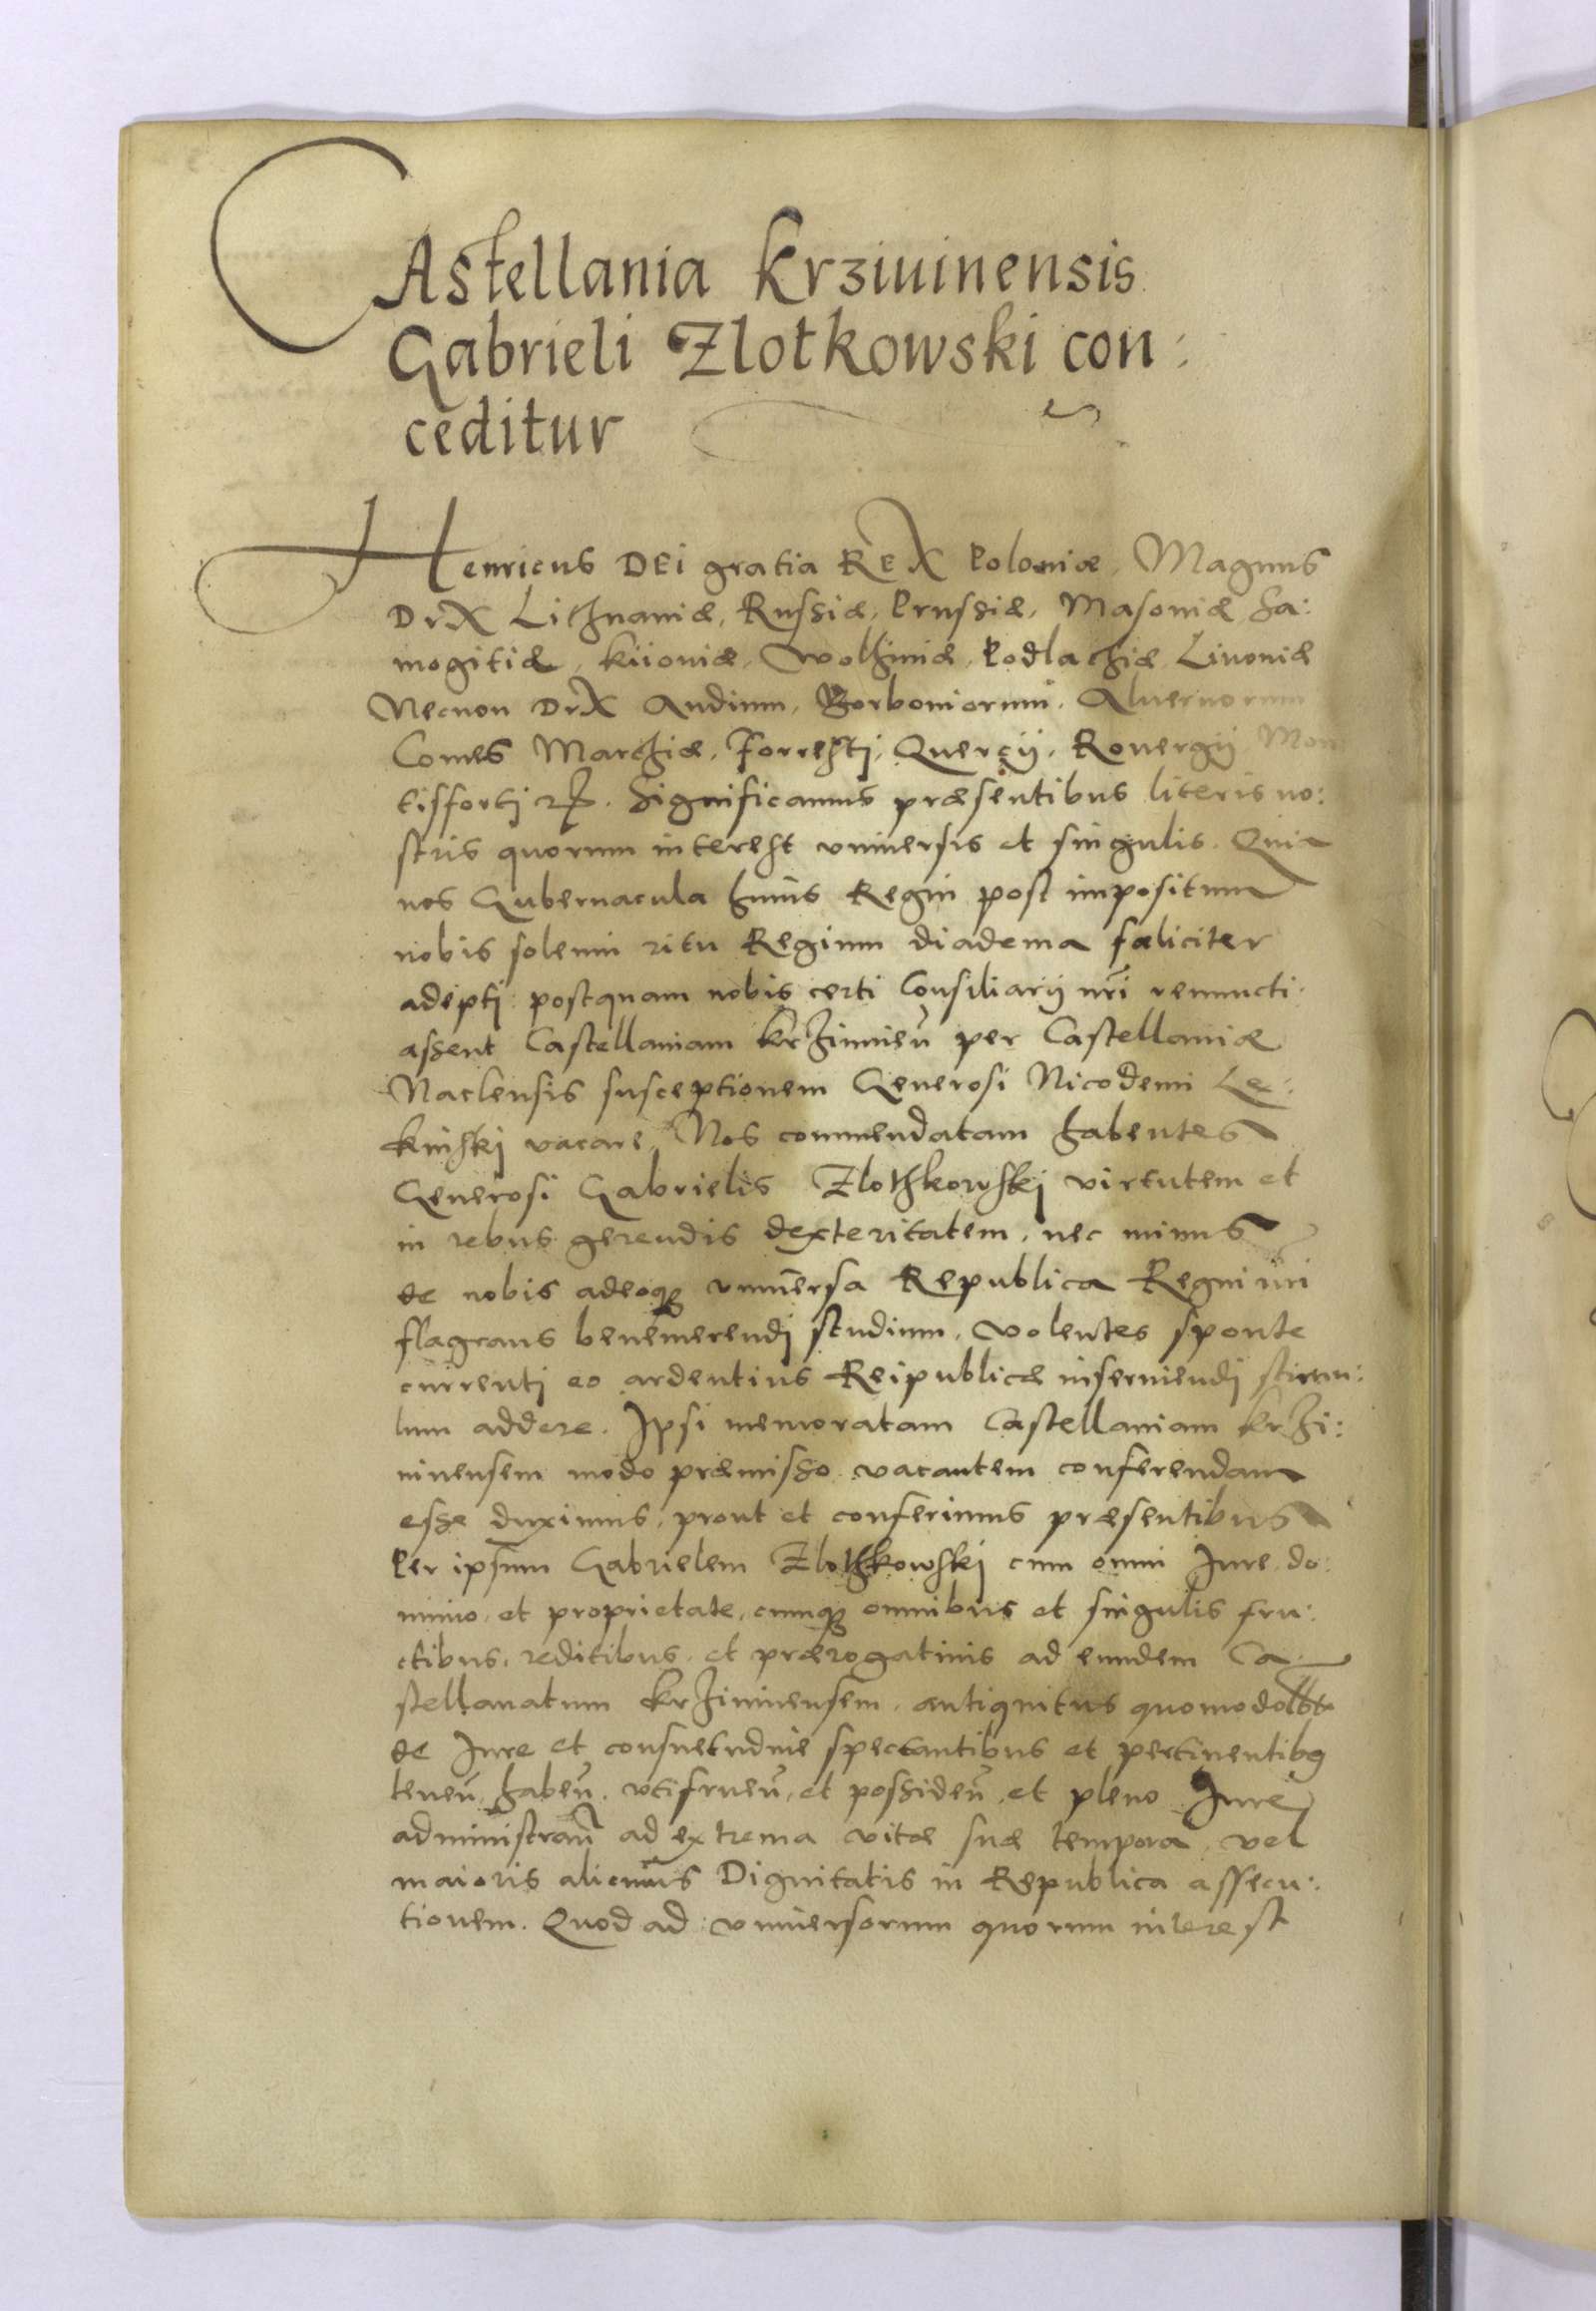 CAstellania Krziuinensis
Gabrieli Zlotkowski con:
ceditur
Henricus DEI gratia REX Poloniæ, Magnus
DVX Lithuaniæ, Russiæ, Prussiæ, Masouiæ Sa:
mogitiæ, Kiiouiæ, Wolhiniæ, Podlachiæ Liuoniæ
Necnon DVX Andium, Borboniorum, Aluernorum
Comes Marchiæ, Forresti, Quercij, Rouergij Mon
tisforti etc. Significamus præsentibus literis no:
stris quorum interest vniuersis et singulis. Quia
nos Gubernacula huius Regni post impositum
nobis solemni ritu Regium diadema fæliciter
adepti: postquam nobis certi Consiliarij nri renuncti:
assent Castellaniam Krziuineñ per Castellaniæ
Naclensis susceptionem Generosi Nicodemi Le:
kinski vacare, Nos commendatam habentes
Generosi Gabrielis Zlothkowski virtutem et
in rebus gerendis dexteritatem, nec minus
de nobis adeoq3 vniuersa Republica Regni nri
flagrans benemerendj studium, volentes sponte
currentj eo ardentius Reipublicæ inseruiendj stimu:
lum addere. Ipsi memoratam Castellaniam Krzi:
uinensem modo præmisso vacantem conferendam
esse duximus, prout et conferimus præsentibus
Per ipsum Gabrielem Zlothkowskj cum omni Iure do:
minio et proprietate, cumq3 omnibus et singulis fru:
ctibus, reditibus, et prærogatiuis ad eundem Ca
stellanatum Krziuinensem, antiquitus quomodolbt
de Iure et consuetudine spectantibus et pertinentib9
teneñ, habeñ, vtifrueñ, et possideñ, et pleno Iure
administrañ ad extrema vitæ suæ tempora, vel
maioris alicuius Dignitatis in Republica assecu:
tionem. Quod ad vniuersorum quorum interest